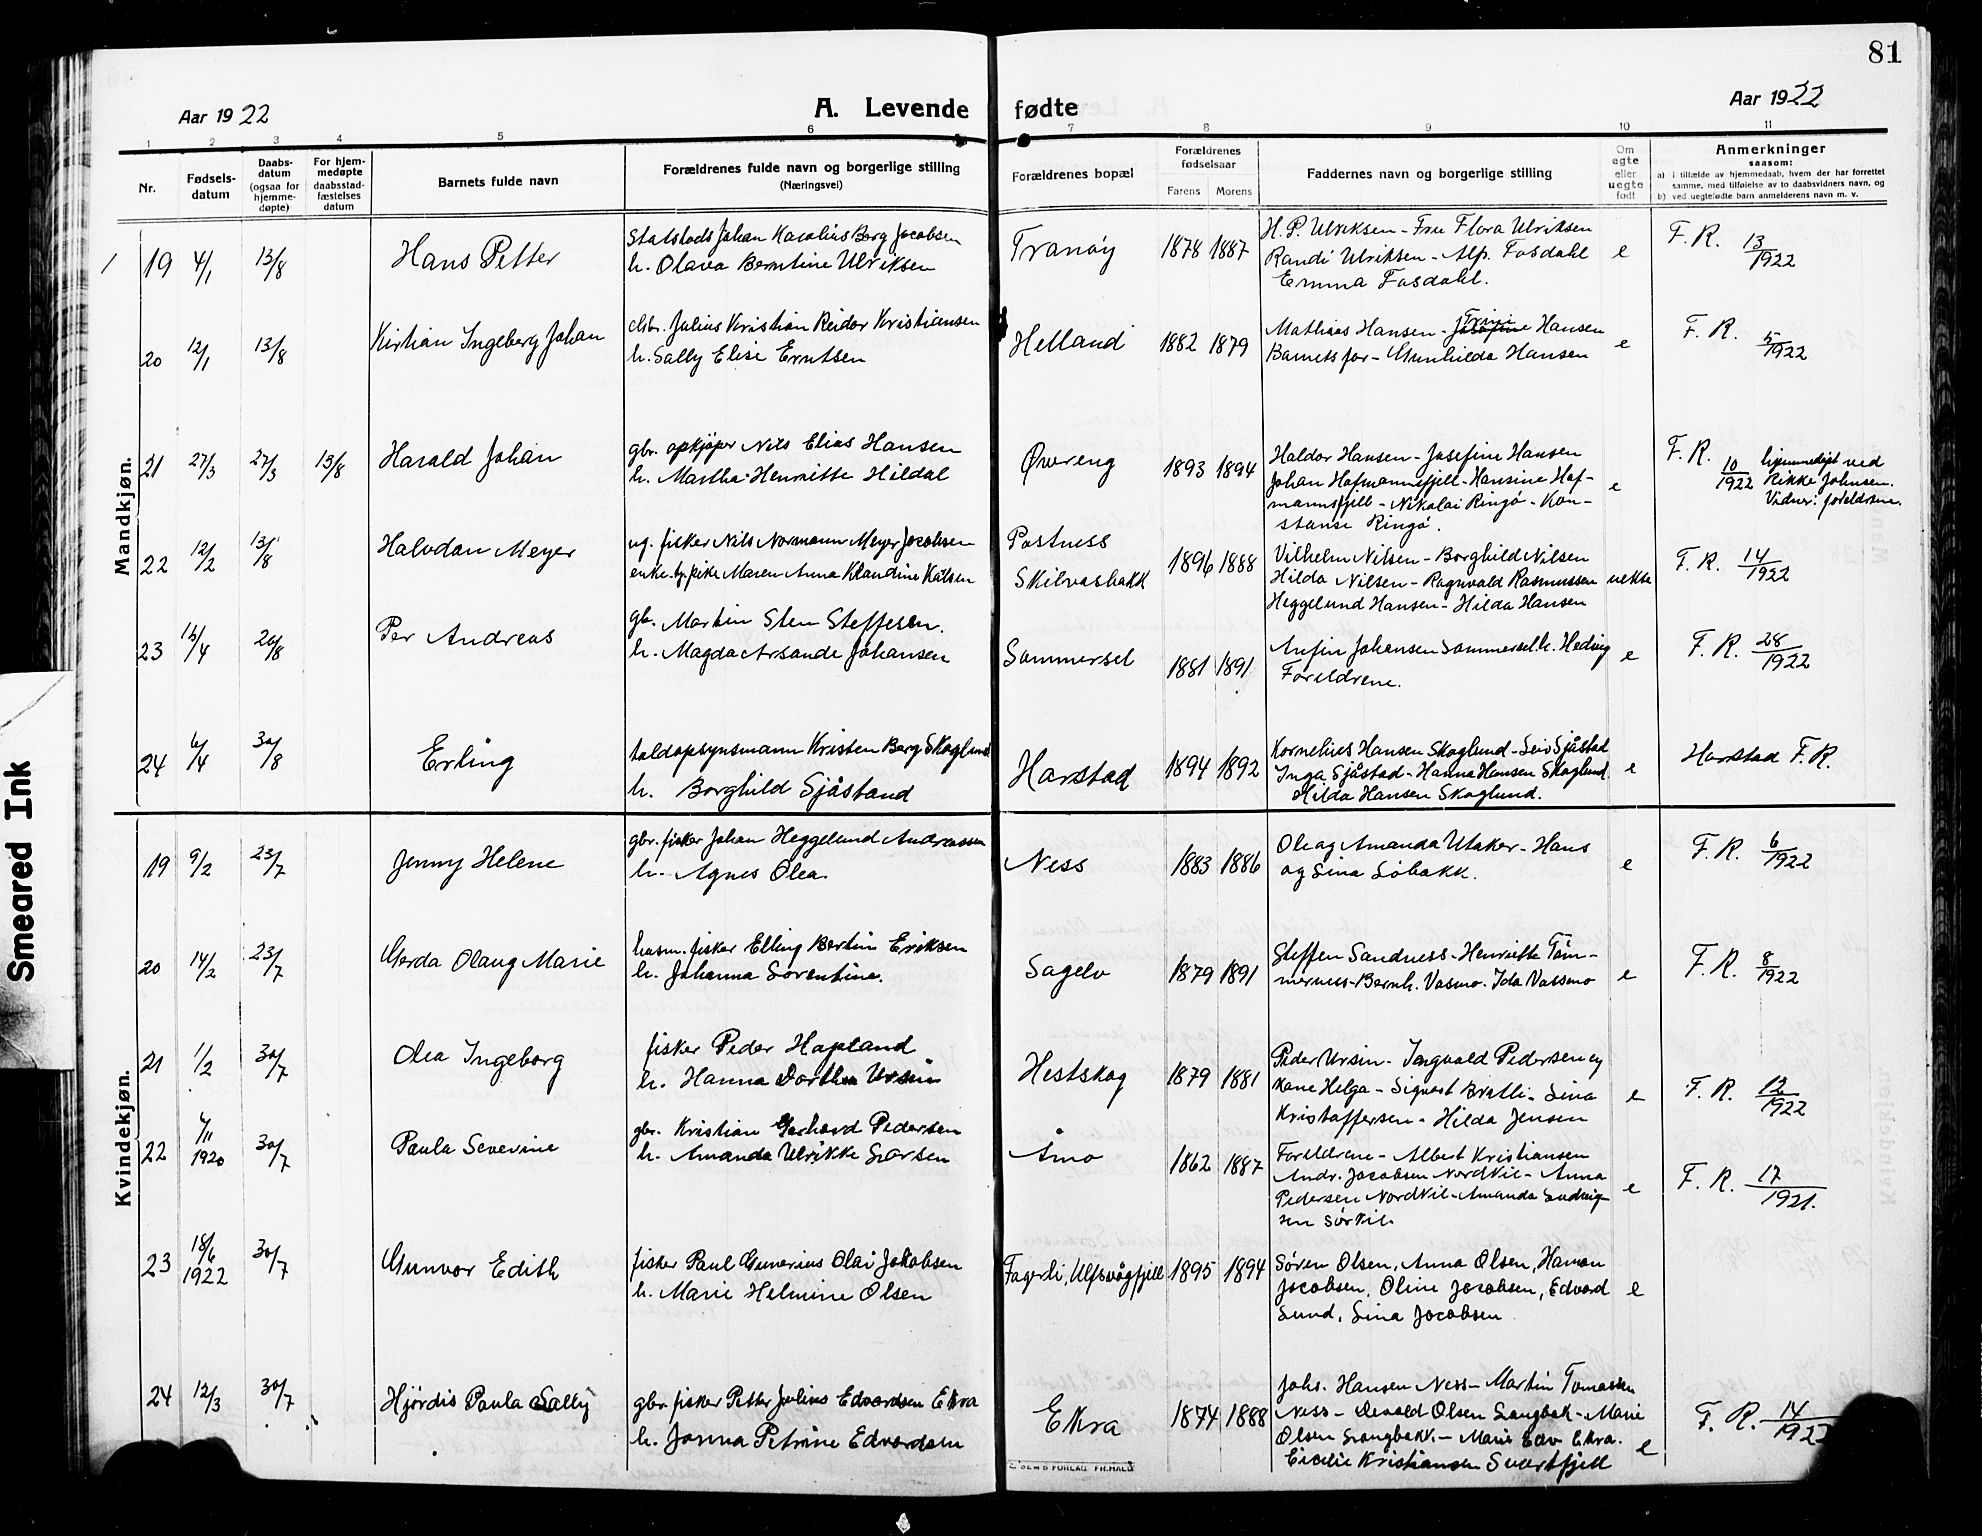 81
Aar 1922
A. Levende fødte
Aar 1922
1 2 3 4 5 6 7 8 9 10 11
Nr.
Fødsels-
datum
Daabs-
datum
(ogsaa for
hjemme-
døpte)
For hjem-
medøpte
daabsstad-
fæstelses
datum
Barnets fulde navn
Forældrenes fulde navn og borgerlige stilling
(Næringsvei)
Forældrenes bopæl
Forældrenes
fødselsaar
Farens Morens
Faddernes navn og borgerlige stilling
Om
egte
eller
uegte
født
Anmerkninger
saasom:
a) i tilfælde av hjemmedaab, hvem der har forrettet
samme, med tilføielse av to daabsvidners navn, og
b) ved uegtefødte barn anmelderens navn m. v.
Mandkjøn.
19 4/1 13/8 Hans Petter
Johan Karolius Berg Jacobsen
h. Olava Berntine Ulriksen
Tranøy 1878 1887
H. P. Ulriksen - Fru Flora Ulriksen
Randi Ulriksen - Alp. Fosdahl
Emma Fosdahl.
e F. R. 13/1922
20 12/1 13/8 Kirtian Ingeberg Johan
Julius Kristian Reidar Kristiansen
h. Sally Elise Erntsen
Helland 1882 1879
Mathias Hansen - Trine Hansen
Barnets far - Gunhilda Hansen
e F. R. 5/1922
21 27/3 27/3 13/8 Harald Johan
gbr. opkjøper Nils Elias Hansen
h. Martha Henriette Hildal
Øvereng 1893 1894
Haldor Hansen - Josefine Hansen
Johan Hofmannsfjell - Hansine Hof-
mannsfjell - Nikolai Ringø - Kon-
stanse Ringø.
e F. R. 10/1922 hjemmedøpt ved
Rikke Johnsen.
Vidner: foreldrene.
22 12/2 13/8 Halvdan Meyer
ug. fisker Nils Normann Meyer Jacobsen
enke Maren Anna Klaudine
Postness
Skilvasbakk 1896 1888
Vilhelm Nilsen - Borghild Nilsen
Hilda Nilsen - Ragnvald Rasmussen
Heggelund Hansen - Hilda Hansen
uekte F. R. 14/1922
23 16/4 20/8 Per Andreas
gb. Martin Sten Steffesen.
h. Magda Arsande Johansen
Sommersel 1881 1891
Anfin Johansen Sommersel. h. Hedvig
Foreldrene.
e F. R. 28/1922
24 6/4 30/8 Erling
toldopsynsmann Kristen Berg Skoglund
h. Borghild Sjåstand
Harstad 1894 1892
Kornelius Hansen Skoglund - Sjåstad
Inga Sjåstad - Hanna Hansen Skoglund
Hilda Hansen Skoglund.
e Harstad F. R.
Kvindekjøn.
19 9/2 23/7 Jenny Helene
gbr. fisker Johan Heggelund Andreassen
h. Agnes Olea.
Ness 1883 1886
Ole og Amanda Utaker - Hans
og Sina Søbakk.
e F. R. 6/1922
20 14/2 23/7 Gerda Olaug Marie
husm. fisker Elling Bertin Eriksen
h. Johanna Sørentine.
Sagelv 1879 1891
Steffen Sandness - Henriette Tøm-
merness - Bernh. Vasmo - Ida Vassmo
e F. R. 8/1922
21 1/2 30/7 Olea Ingeborg
fisker Peder Hapland
h. Hanna Dorthea Ursin
Hestskog 1879 1881
Peder Ursin - Ingvald Pedersen og
kone Helga - Sigvart Bratli - Sina
Kristoffersen - Hilda Jensen
e F. R. 12/1922
22 6/11 1920 30/7 Paula Severine
gbr. Kristian Gerhard Pedersen
h. Amanda Ulrikke Larsen
Åmo 1862 1887
Foreldrene - Albert Kristiansen
Andr. Jacobsen Nordkil - Anna
Pedersen Nordkil - Amanda Ludvig-
sen Sørkil.
e F. R. 17/1921.
23 18/6 1922 30/7 Gunvor Edith
fisker Paul Gunerius Olai Jakobsen
h. Marie Helmine Olsen
Fagerli, Ulfsvågfjell 1895 1894
Søren Olsen, Anna Olsen, Hamon
Jocobsen, Oline Jocobsen, Edvard
Lund, Sina Jocobsen
e
24 12/3 30/7 Hjördis Paula Sally
gbr. fisker Petter Julius Edvardsen Ekra
h. Jonna Petrine Edvardsen
Ekra 1874 1888
Johs. Hansen Ness - Martin Tomassen
Ness - Olsen Langbak - Marie
Olsen Langbakk. - Marie Edv. Ekra.
Cicilie Kristiansen Svartfjell
e F. R. 14/1922
FORLAG
Smeared Ink